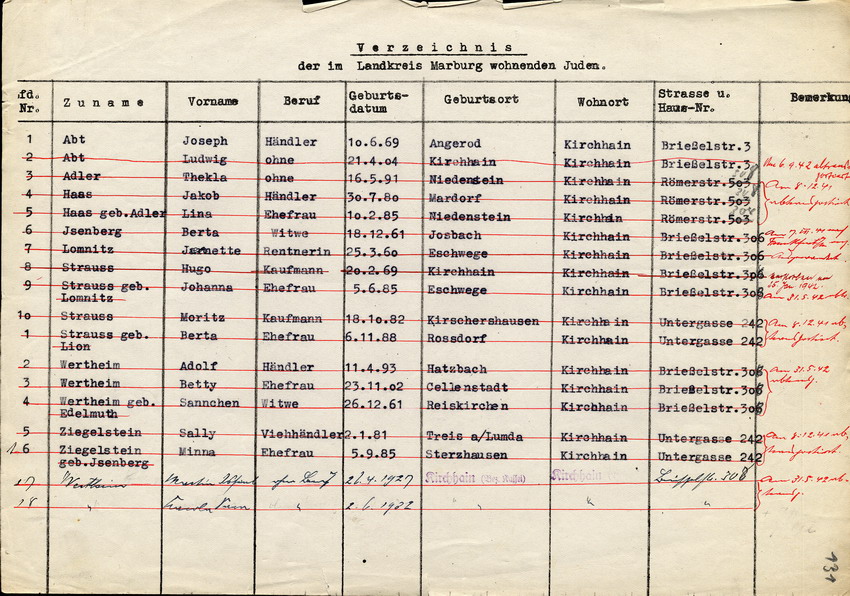 Verzeichnis
der im Landkreis Marburg wohnenden Juden.
lfd. Nr. Zuname Vorname Beruf Geburts-datum Geburtsort Wohnort Strasse u. Haus-Nr. Bemerkung
1 Abt Joseph Händler 10.6.69 Angerod Kirchhain Brießelstr.3
2 Abt Ludwig ohne 21.4.04 Kirchhain Kirchhain Brießelstr.3
3 Adler Thekla ohne 16.5.91 Niedenstein Kirchhain Römerstr.503
4 Haas Jakob Händler 30.7.80 Mardorf Kirchhain Römerstr.503
5 Haas geb.Adler Lina Ehefrau 10.2.85 Niedenstein Kirchhain Römerstr.503
6 Jsenberg Berta Witwe 18.12.61 Josbach Kirchhain Brießelstr.306
7 Lomnitz Jeannette Rentnerin 25.3.60 Eschwege Kirchhain Brießelstr.306
8 Strauss Hugo Kaufmann 20.2.69 Kirchhain Kirchhain Brießelstr.306
9 Strauss geb. Johanna Ehefrau 5.6.85 Eschwege Kirchhain Brießelstr.308
Lomnitz
Am 31.5.42
10 Strauss Moritz Kaufmann 18.10.82 Kirschershausen Kirchhain Untergasse 242 Am 8.12.41
1 Strauss geb. Berta Ehefrau 6.11.88 Rossdorf Kirchhain Untergasse 242
Lion
2 Wertheim Adolf Händler 11.4.93 Hatzbach Kirchhain Brießelstr.308 Am 31.5.42
3 Wertheim Betty Ehefrau 23.11.02 Cellenstadt Kirchhain Brießelstr.308
4 Wertheim geb. Sannchen Witwe 26.12.61 Reiskirchen Kirchhain Brießelstr.308
Edelmuth
5 Ziegelstein Sally Viehhändler 2.1.81 Treis a/Lumda Kirchhain Untergasse 242 Am 8.12.41
16 Ziegelstein Minna Ehefrau 5.9.85 Sterzhausen Kirchhain Untergasse 242
geb.Jsenberg
17 Wertheim Martin 26.4.1927 Kirchhain (Bez. Kassel) Kirchhain 308 Am 31.5.42
18 " " 2.6.1932 " " "
131